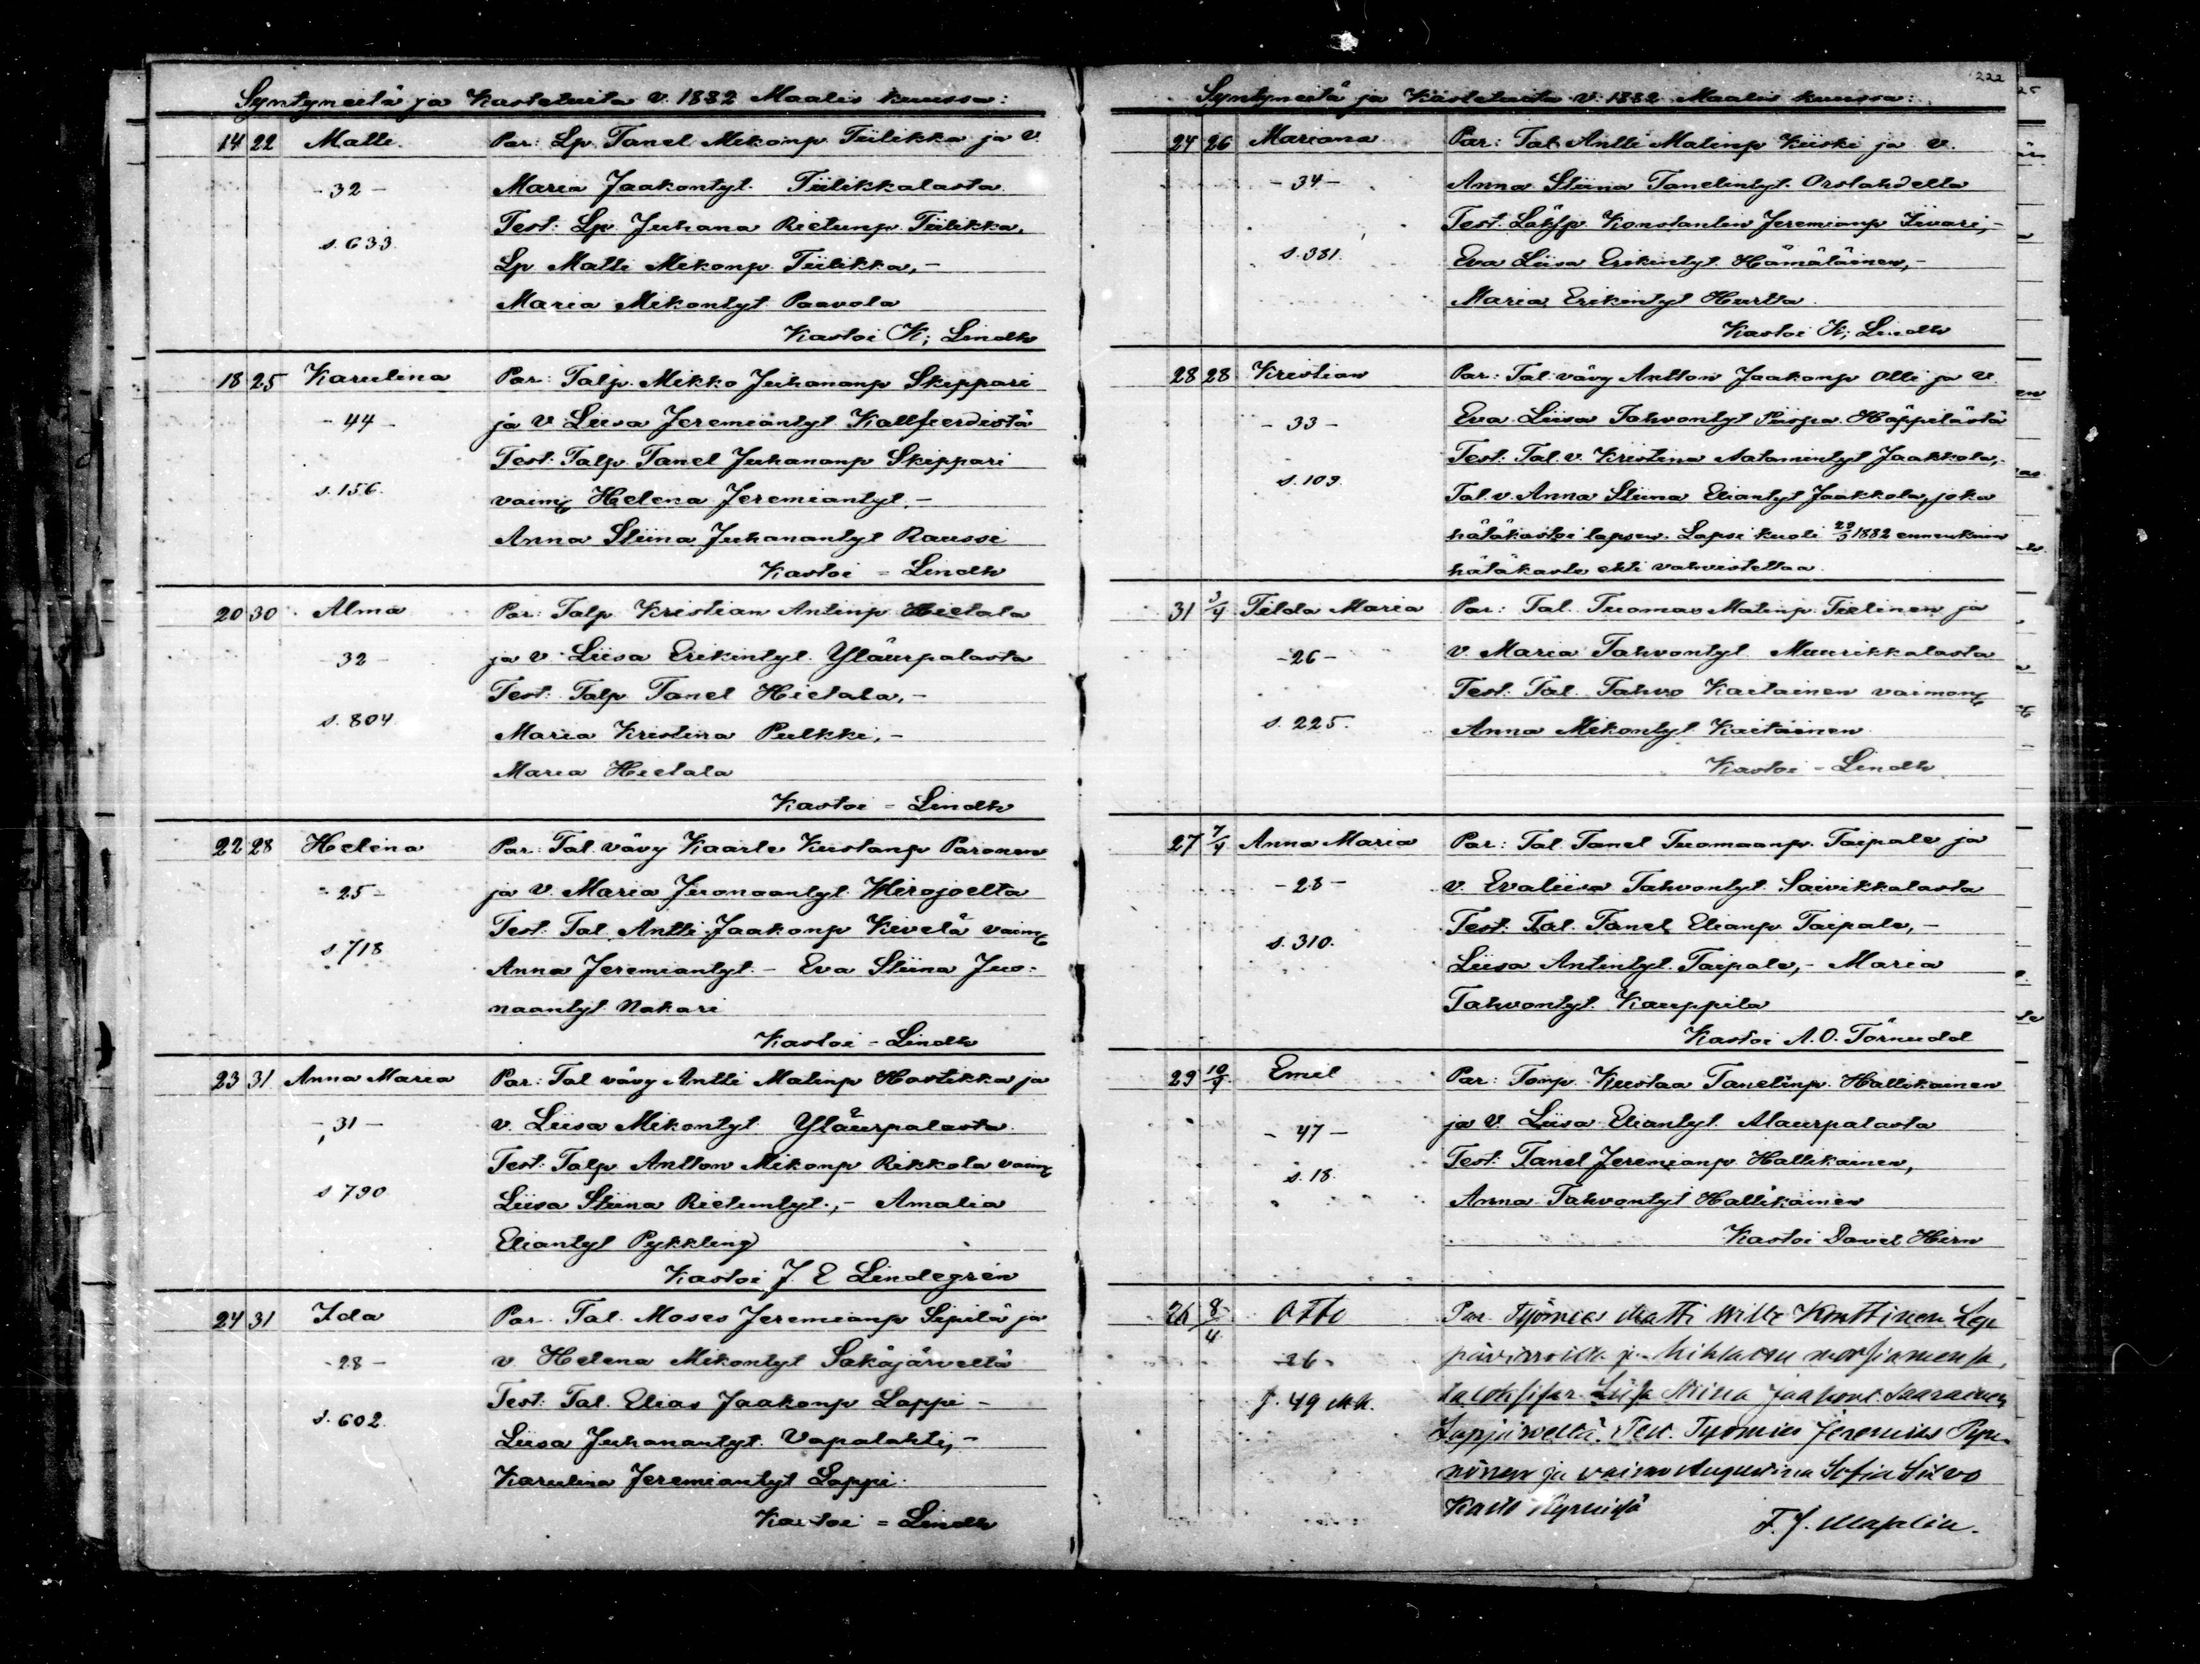 Syntyneitä ja Kastetuita v. 1882 Maalis kuussa:
14 22 Matti. Par: Lp. Tanel Mikonp. Tiilikka ja v.
- 32 - Maria Jaakontyt. Tiilikkalasta.
Test: Lp. Juhana Rietunp. Tiilikka,
s. 633. Lp Matti Mikonp. Tiilikka, -
Maria Mikontyt Paavola
Kastoi K; Lindh
18 25 Karulina Par: Talp. Mikko Juhananp Skippari
- 44 - ja v Liisa Jeremiantyt Kallfierdistä
Test: Talp. Tanel Juhananp Skippari
s. 156. vaim. Helena Jeremiantyt. -
Anna Stiina Juhanantyt Raussi
Kastoi = Lindh
20 30 Alma Par: Talp Kristian Antinp Hietala
32 - ja v Liisa Erikintyt. Yläurpalasta
Test: Talp Tanel Hietala, -
s. 804. Maria Kristina Pulkki, -
Maria Hietala
Kastoi = Lindh
22 28 Helena Par: Tal. vävy Kaarle Kustanp Paronen
- 25 - ja v. Maria Juonaantyt Wirojoelta
Test: Tal. Antti Jaakonp Kivelä vaim
s 718 Anna Jeremiantyt. - Eva Stiina Juo-
naantyt Nakari
Kastoi = Lindh
23 31 Anna Maria Par: Tal vävy Antti Matinp Hostikka ja
- 31 - v. Liisa Mikontyt Yläurpalasta.
Test: Talp Antton Mikonp Rikkola vaim
s 790 Liisa Stiina Rietuntyt., - Amalia
Eliantyt Pykkling
Kastoi J. E Lindegrén
24 31 Ida Par. Tal. Moses Jeremianp Sipilä ja
- 28 - v Helena Mikontyt Säkäjärveltä
Test: Tal. Elias Jaakonp Lappi -
s. 602. Liisa Juhanantyt. Vapalahti, -
Karulina Jeremiantyt Lappi.
Kastoi = Lindh
222
Syntyneitä ja Kastetuita v. 1882 Maalis kuussa:
24 26 Mariana Par: Tal. Antti Matinp Kiiski ja v.
- 34 - Anna Stiina Tanelintyt. Orslahdelta
Test. Konstantin Jeremianp Iivari, -
s. 381. Eva Liisa Erikintyt. Hämäläinen, -
Maria Erikintyt Hurtta.
Kastoi K; Lindh
28 28 Kristian Par: Tal. vävy Antton Jaakonp Olli ja v.
- 33 - Eva Liisa Tahvontyt Piispa Häppilästä
Test: Tal. v. Kristina Aatamintyt Jaakkola, -
s. 109. Tal. v. Anna Stiina Eliantyt Jaakkola, joka
hätäkastoi lapsen. Lapsi kuoli 29/3 1882 ennenkuin
hätäkaste ehti vahvistettaa.
31 3/4 Tilda Maria Par: Tal. Tuomas Matinp. Tielinen ja
- 26 - v. Maria Tahvontyt Muurikkalasta
Test: Tal. Tahvo Kaitainen vaimon
s. 225. Anna Mikontyt Kaitainen
Kastoi = Lindh
27 7/4 Anna Maria Par: Tal. Tanel Tuomaanp. Taipale ja
- 28 - v. Evaliisa Tahvontyt. Saivikkalasta
Test: Tal. Tanel Elianp Taipale, -
s. 310. Liisa Antintyt. Taipale, - Maria
Tahvontyt. Kauppila
Kastoi A. O. Törnudd
29 10/4 Emil Par: Tonp. Kustaa Tanelinp. Hallikainen
- 47 - ja v Liisa Eliantyt. Alaurpalasta
Test: Tanel Jeremianp Hallikainen,
s. 18. Anna Tahvontyt Hallikainen
Kastoi David Hirn
26 8/4 Otto Par. Työmies Matti Wille Konttinen
- 26 -
49 Liisa Stiina
Test. Työmies Jeremias
ja vaimo Augustina Sofia Silvo
F. J.